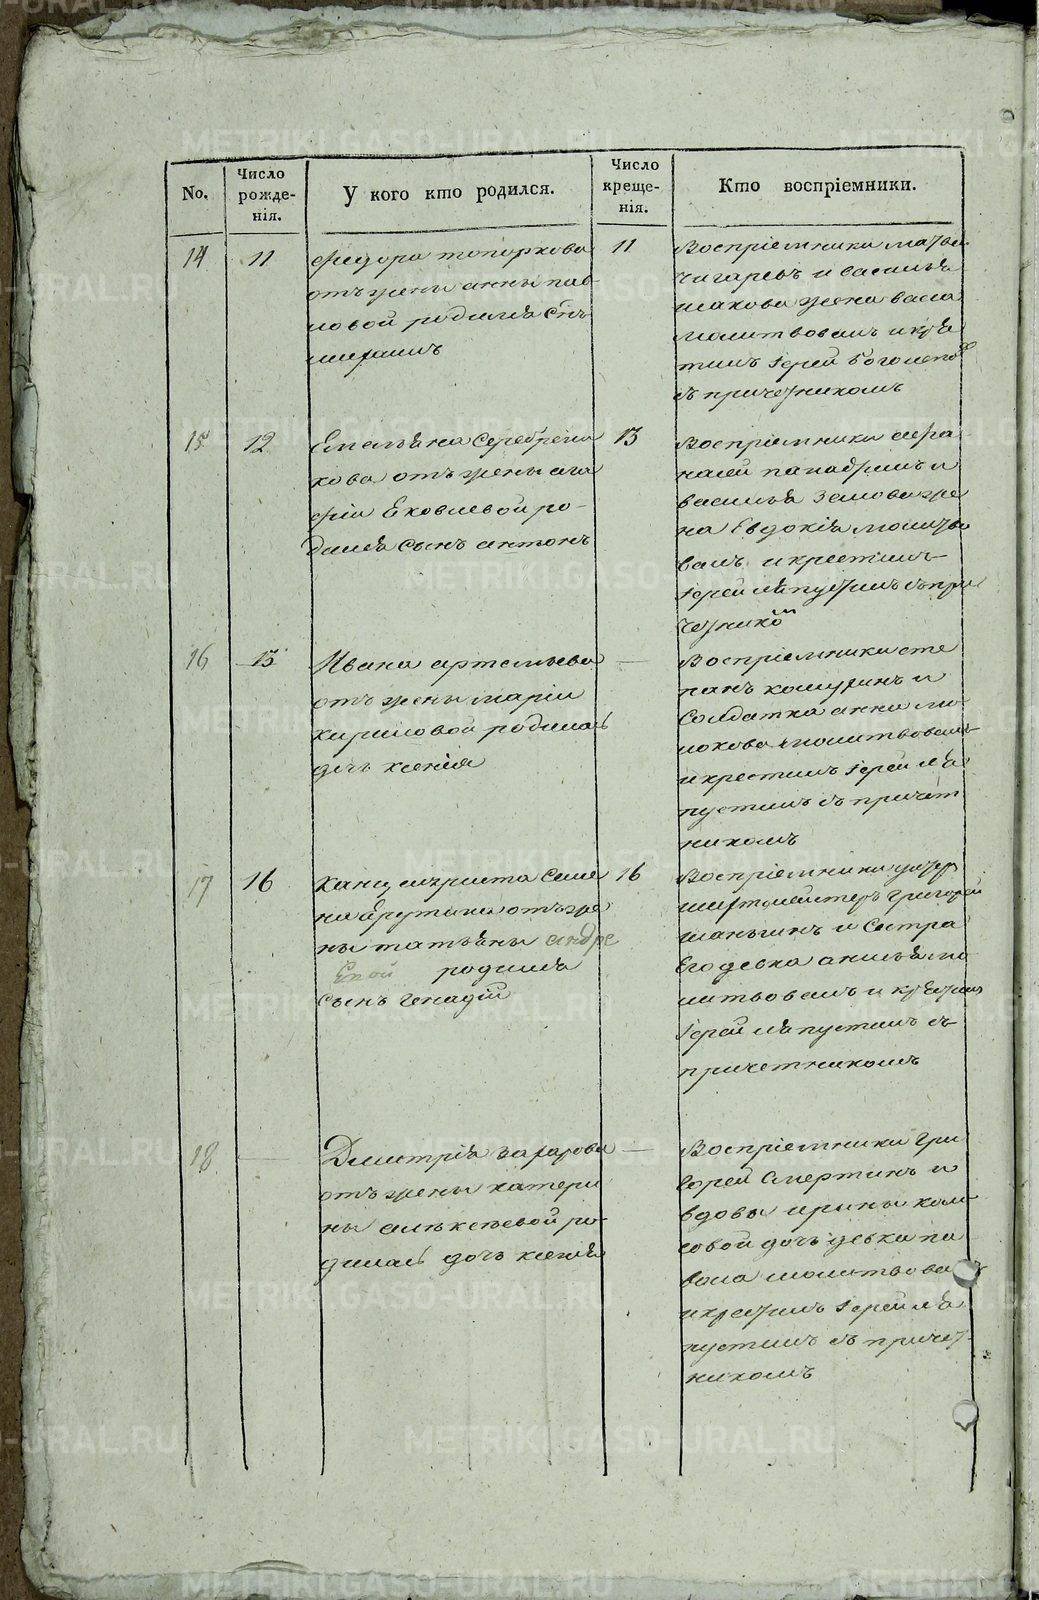 No.
Число рожде-
нія.
У кого кто родился.
Число креще-
нія.
Кто воспріемники.
14
11
Федора топоркова
отъ жены анны пав
ловой родился снъ
михаилъ
11
Воспріемники матвѣ
чигаревъ и василья
жена васса
молитвовалъ и крѣ
тилъ Іерей
съ причетникомъ
15
12
Емельяна Серебрени
кова отъ жены ага
фіи Ековлевой ро-
дился сынъ антонъ
13
Воспріемники афа
насей панафилъ и
василья Зомова же
на Евдокія молитво
валъ и крестилъ
Іерей лапустинъ съ при
четнико
16
15
Ивана артемьева
отъ жены маріи
кириловой родилась
дочь ксенія
—
Воспріемники сте
панъ кошуринъ и
Солдатка анна
молитвовалъ
и крестилъ Іерей ла
пустинъ съ причет
никомъ
17
16
Канцеляриста Семе
на Ерутина отъ же
ны татьяны андре
Евой родился
сынъ генадій
16
Воспріемники
григорей
шаньгинъ и Сестра
Его девка анисья мо
литвовалъ и крѣтилъ
Іерей лапустинъ съ
причетникомъ
18
—
Дмитрія захарова
отъ жены катери
ны алѣксѣевой ро-
дилась дочь ксенія
—
Воспріемники гри
горей Смертинъ и
вдовы ирины кол
совой дочь девка па
вола молитвова
и крестилъ Іерей ла
пустинъ съ причет-
никомъ
METRIKI.GASO-URAL.RU